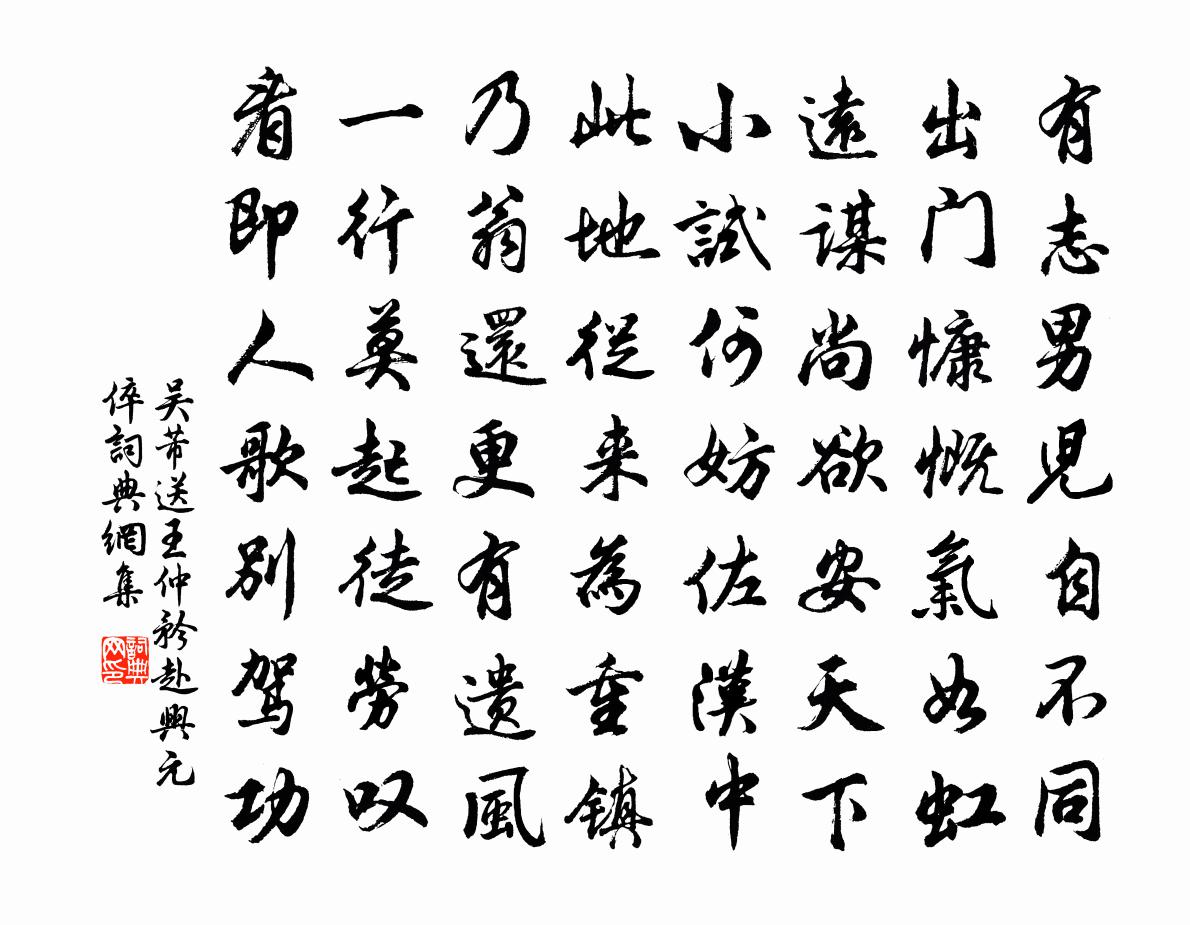 有志男児自不同
出门慷慨氣如虹
遠謀尚欲安天下
小試何妨佐漢中
此地從来為重鎮
乃翁還更有遺風
一行莫起徒勞叹
看即人歌別駕功
吴芾送王仲矜赴興元
倅詞典網集
詞典网印